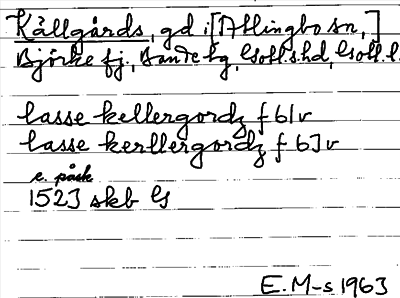 Källgårds, gd i [Atlingbo sn,]
Björke fj., Bande tg, Gotl.s.hd, Gotl. l.
lasse kellergordz f 61v
lasse kerllergordz f 63v
e. påsk
1523 skb G
E.M-s 1963